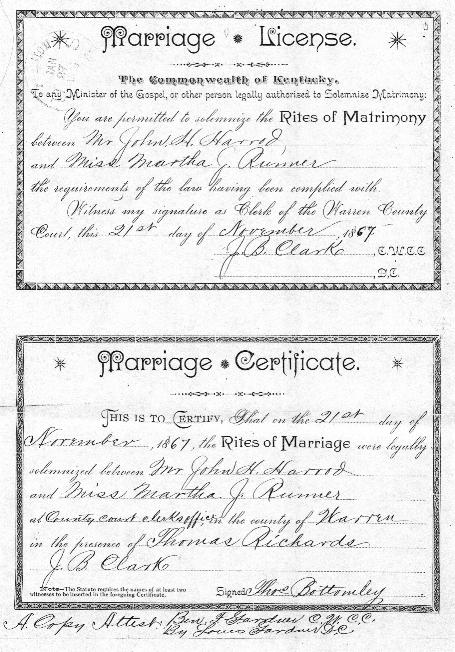 Marriage License.
The Commonwealth of Kentucky.
To any Minister of the Gospel, or other person legally authorized to Solemnize Matrimony:
You are permitted to solemnize the Rites of Matrimony
between Mr John H. Harrod
and Miss Martha J. Runner
the requirements of the law having been complied with.
Witness my signature as Clerk of the Warren County
Court, this 21st day of November, 1867
J. B. Clark, C.W.C.C.
, D.C.
Marriage Certificate.
THIS IS TO CERTIFY, That on the 21st day of
November, 1867, the Rites of Marriage were legally
solemnized between Mr John H. Harrod
and Miss Martha J. Runner
at County court clerks office in the county of Warren
in the presence of Thomas Richards
J B Clark
Note—The Statute requires the names of at least two
witnesses to be inserted in the foregoing Certificate.
Signed Thos Bottomley
A. Copy Attest. Ben. F Gardner C.W.C.C.
By Louis Gardner D.C